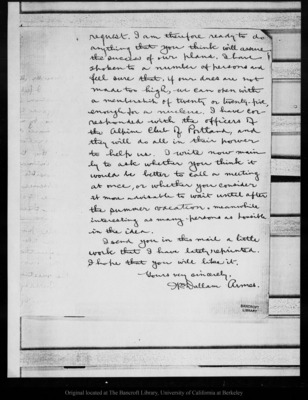 request. I am therefore ready to do
anything that you think will assure
the success of our plans. I have
spoken to a number of persons and
feel sure that, if our dues are not
made too high, we can open with
a membership of twenty or twenty-five,
enough for a nucleus. I have cor-
responded with the officers of
the Alpine Club of Portland, and
they will do all in their power
to help us. I write now main-
ly to ask whether you think it
would be better to call a meeting
at once, or whether you consider
it more advisable to wait until after
the summer vacation, meanwhile
interesting as many persons as possible
in the idea.
I send you in this mail a little
work that I have lately reprinted.
I hope that you will like it.
Yours very sincerely,
Wm Dallam Armes.
BANCROFT
LIBRARY
Original located at The Bancroft Library, University of California at Berkeley